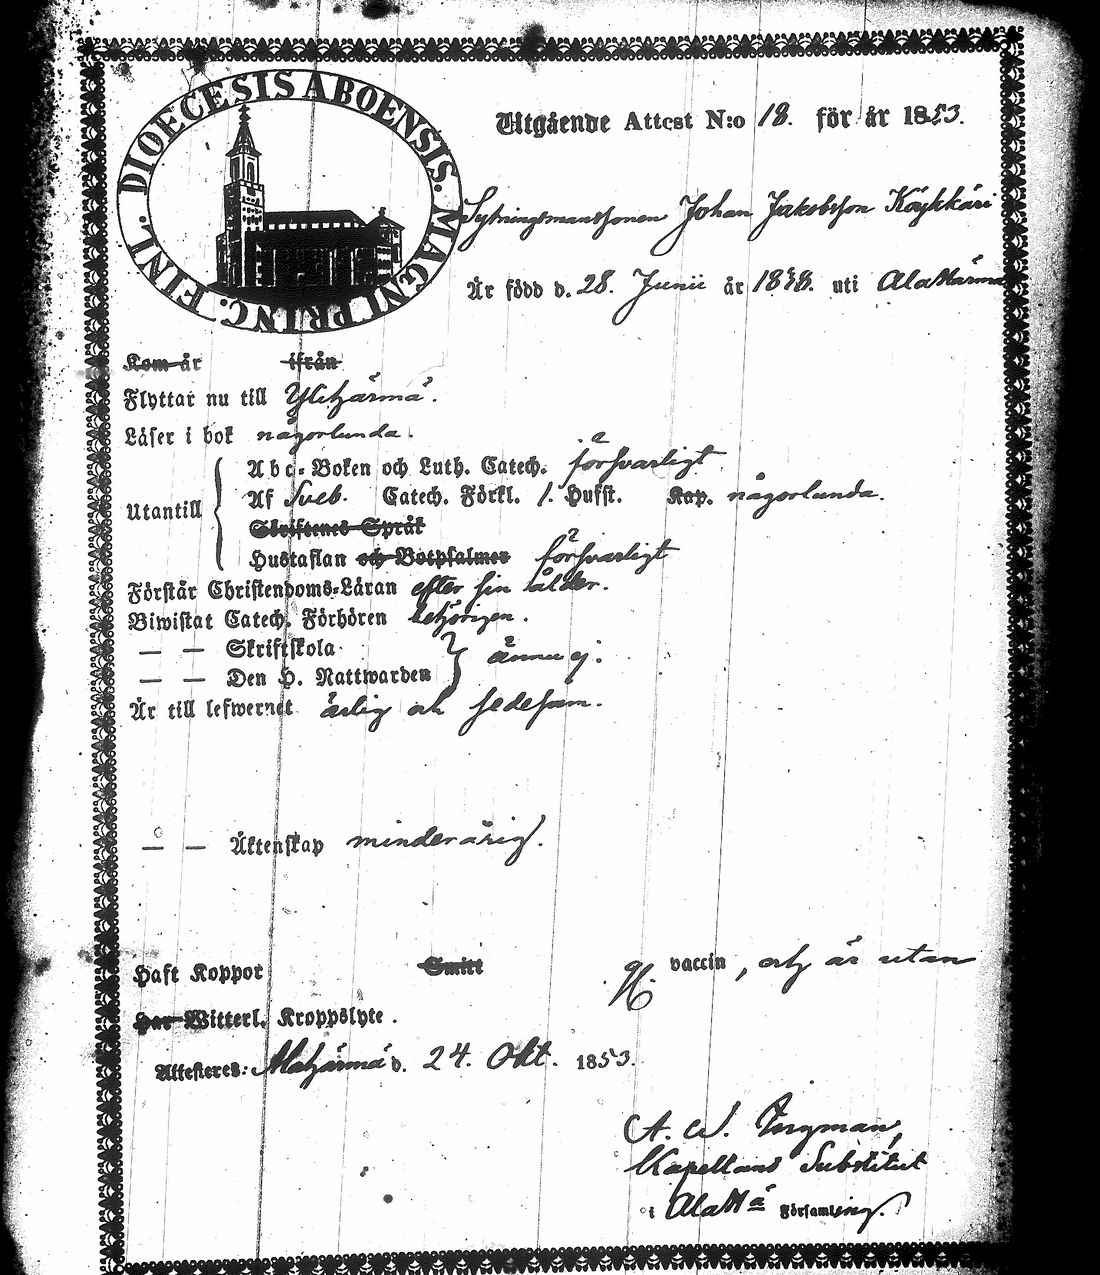 DIOECESIS ABOENSIS. MAGNI PRINC. FINL.
Utgående Attest N:o 18. för år 1853.
Sytningsmanssonen Johan Jakobsson Köykkäri
Är född d. 28. Junii år 1838. uti AlaHärmä
Kom år ifrån
Flyttar nu till Ylihärmä.
Läser i bok någorlunda.
Utantill
Abc-Boken och Luth. Catech. försvarligt
Af Sveb. Catech. Förkl. 1. Hufst. Kap. någorlunda.
Skriftenes Språk
Hustaflan och Botpsalmer försvarligt
Förstår Christendoms-Läran efter sin ålder.
Biwistat Catech. Förhören behörigen.
— — Skriftskola
— — Den H. Nattwarden ännu ej.
Är till lefwernet ärlig och sedesam.
— — Äktenskap minderårig.
Haft Koppor Smitt vaccin, och är utan
Har Witterl. Kroppslyte.
Attesteres: Alahärmä d. 24. Okt. 1853.
Kapellans Substitut
i AlaHä Församling.